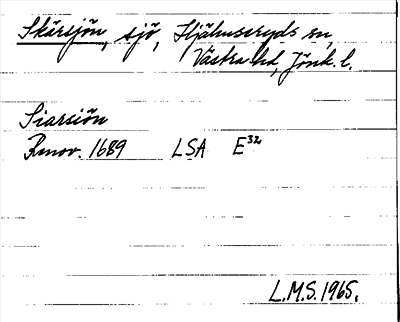 Skärsjön, sjö, Hjälmseryds sn,
Västra hd, Jönk. l.
Siarsiön
Rmov. 1689 LSA E³²
L.M.S. 1965.